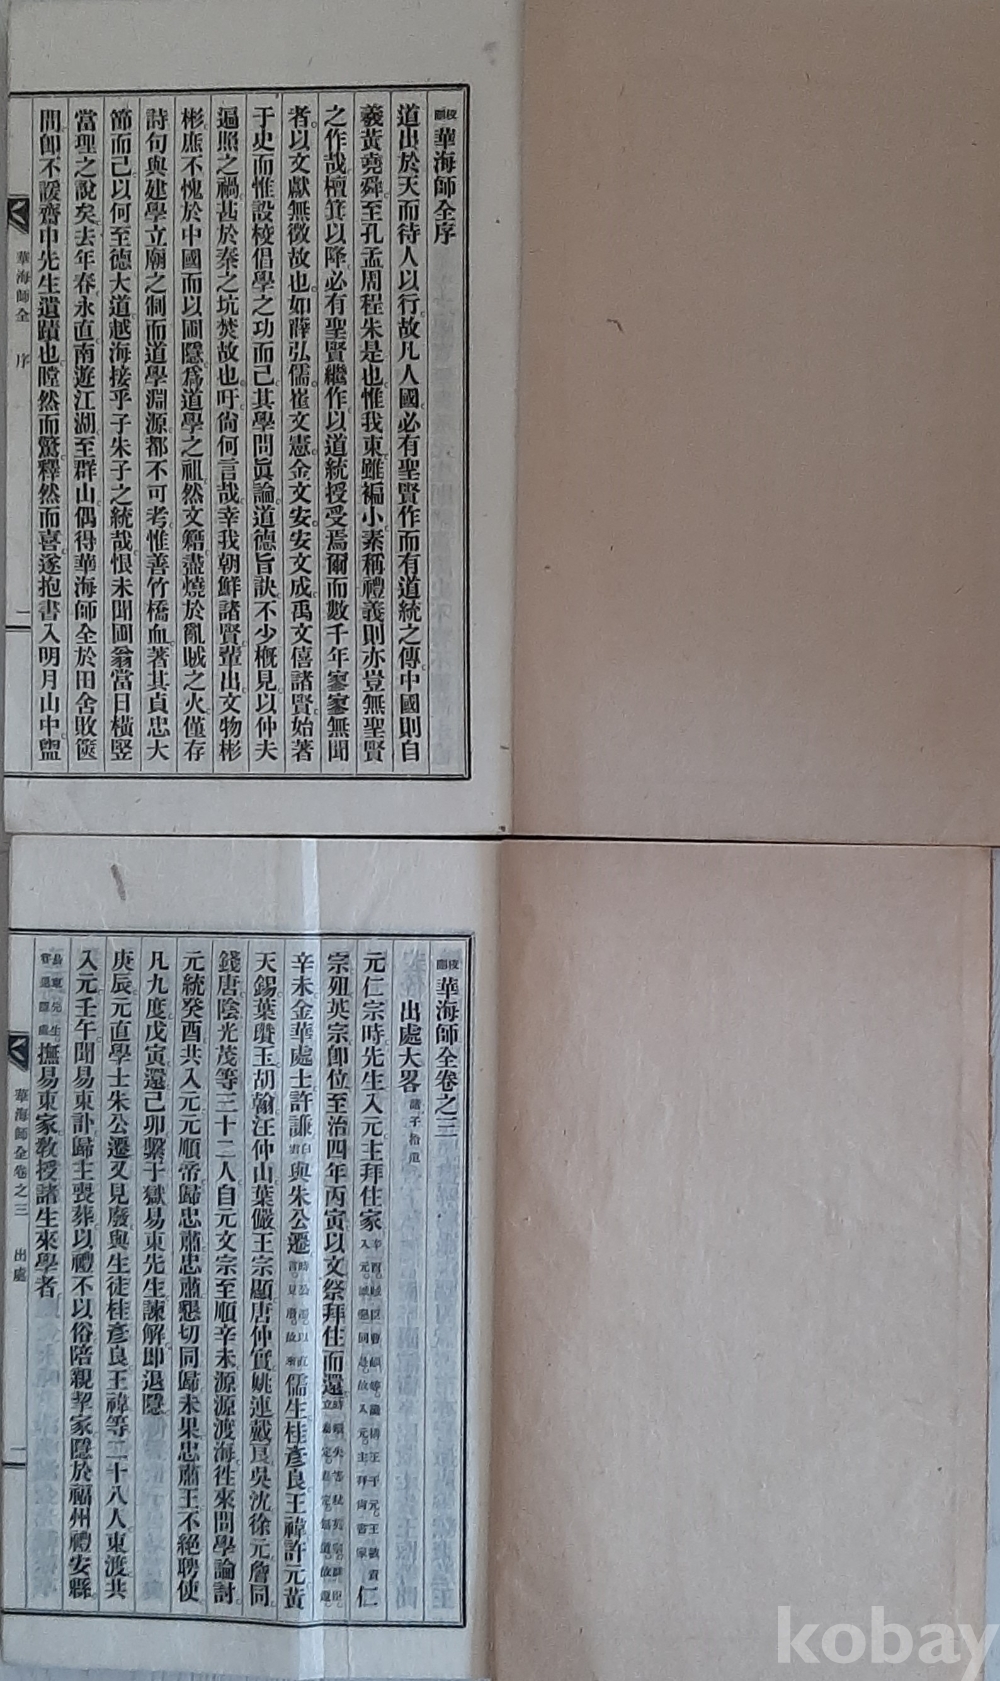 校訂 華海師全序
道出於天而待人以行故凡人國必有聖賢作而有道統之傳中國則自
羲黃堯舜至孔孟周程朱是也惟我東雖褊小素稱禮義則亦豈無聖賢
之作哉檀箕以降必有聖賢繼作以道統授受焉爾而數千年寥寥無聞
者以文獻無徵故也如薛弘儒崔文憲金文安安文成禹文僖諸賢始著
于史而惟設校倡學之功而已其學問眞論道德旨訣不少槪見以仲夫
遍照之禍甚於秦之坑焚故也吁尙何言哉幸我朝鮮諸賢輩出文物彬
彬庶不愧於中國而以圃隱爲道學之祖然文籍盡燒於亂賊之火僅存
詩句與建學立廟之制而道學淵源都不可考惟善竹橋血著其貞忠大
節而已以何至德大道越海接乎子朱子之統哉恨未聞圃翁當日橫竪
當理之說矣去年春永直南遊江湖至群山偶得華海師全於田舍敗篋
間卽不諼齋申先生遺蹟也瞠然而驚釋然而喜遂抱書入明月山中盥
華海師全 序 一
校訂 華海師全卷之三
出處大畧 諸子拾遺
元仁宗時先生入元主拜住家 仁
宗殂英宗卽位至治四年丙寅以文祭拜住而還
辛未金華處士許謙 白雲 與朱公遷 儒生桂彥良王褘許元黃
天錫葉瓚玉胡翰汪仲山葉儼王宗顯唐仲實姚連戴良吳沈徐元詹同
錢唐陰光茂等三十二人自元文宗至順辛未源源渡海徃來問學論討
元統癸酉共入元元順帝歸忠肅忠肅懇切同歸未果忠肅王不絕聘使
凡九度戊寅還己卯繫于獄易東先生諫解即退隱
庚辰元直學士朱公遷又見廢與生徒桂彥良王褘等二十八人東渡共
入元壬午聞易東訃歸主喪葬以禮不以俗陪親挈家隱於福州禮安縣
撫易東家敎授諸生來學者
華海師全卷之三 出處 一
kobay